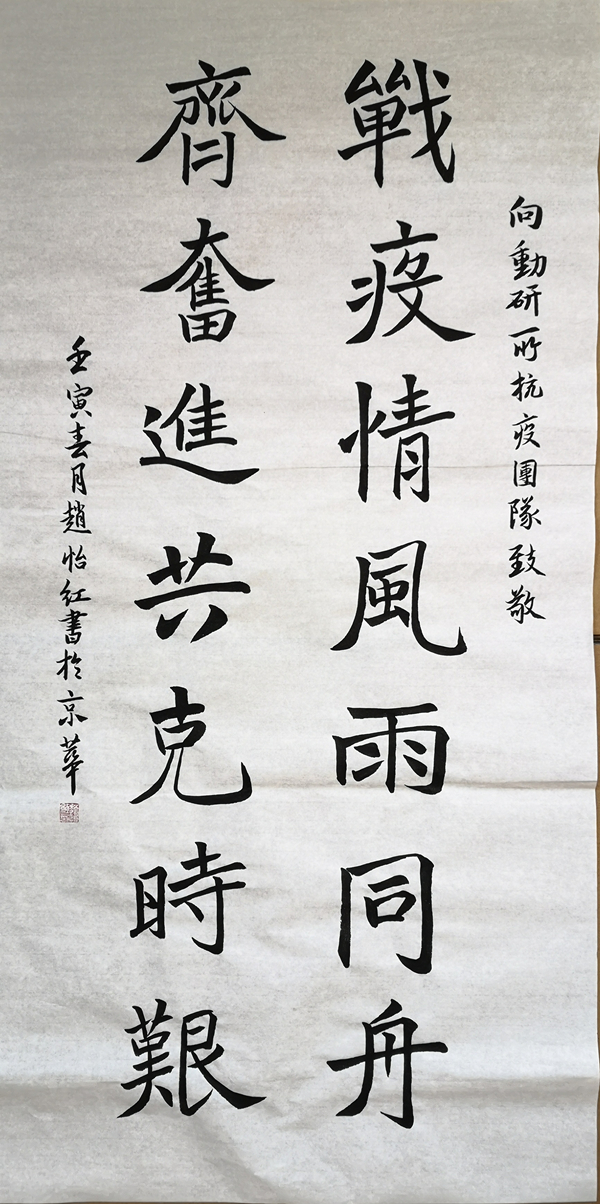 向動研所抗疫團隊致敬
戰疫情風雨同舟
齊奮進共克時艱
壬寅春月趙怡紅書於京華